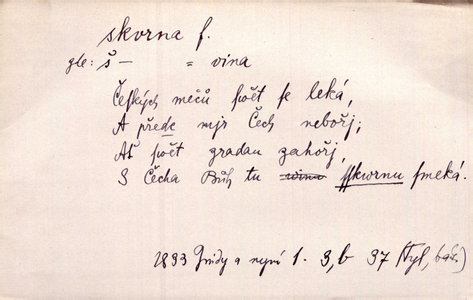 skvrna f.
gle: š – = vina
Českých mečů swět se leká,
A přede mjr Čech nebořj;
Ať swět zradau zahořj,
S Čecha Bůh tu winu sskwrnu smeká.
1833 Jindy a nyní 1. 3, b 37 (Tyl, báš.)